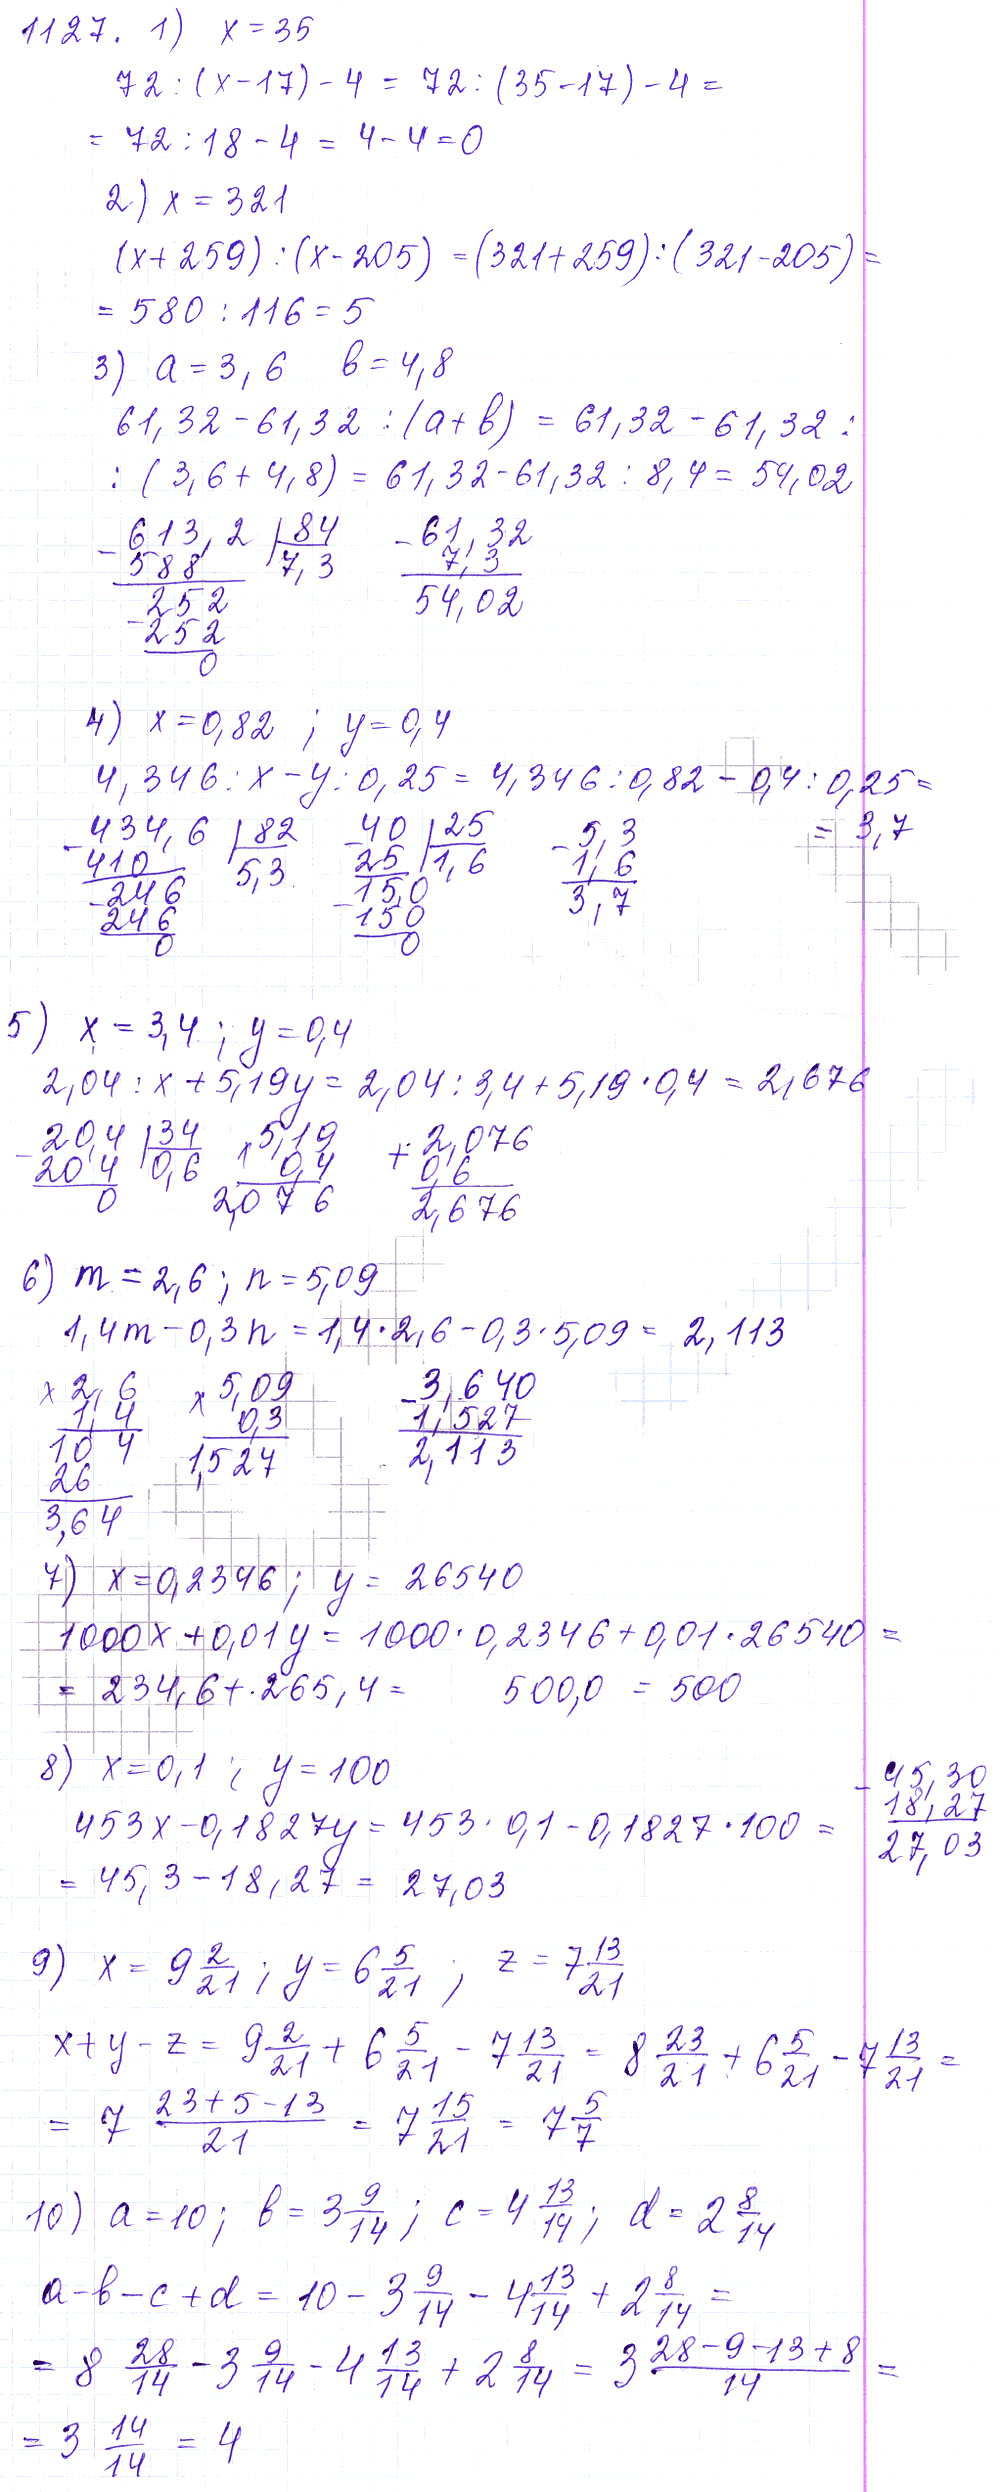 1127. 1) x = 35
72 : (x - 17) - 4 = 72 : (35 - 17) - 4 =
= 72 : 18 - 4 = 4 - 4 = 0
2) x = 321
(x + 259) : (x - 205) = (321 + 259) : (321 - 205) =
= 580 : 116 = 5
3) a = 3,6 b = 4,8
61,32 - 61,32 : (a + b) = 61,32 - 61,32 :
: (3,6 + 4,8) = 61,32 - 61,32 : 8,4 = 54,02
- 613,2 | 84 - 61,32
588 7,3 7,3
252 54,02
- 252
0
4) x = 0,82 ; y = 0,4
4,346 : x - y : 0,25 = 4,346 : 0,82 - 0,4 : 0,25 =
- 434,6 | 82 - 40 | 25 - 5,3 = 3,7
410 5,3 25 1,6 1,6
- 246 - 15,0 3,7
246 150
0 0
5) x = 3,4 ; y = 0,4
2,04 : x + 5,19y = 2,04 : 3,4 + 5,19 · 0,4 = 2,676
- 20,4 | 34 x 5,19 + 2,076
20 4 0,6 0,4 0,6
0 2,076 2,676
6) m = 2,6 ; n = 5,09
1,4m - 0,3n = 1,4 · 2,6 - 0,3 · 5,09 = 2,113
x 2,6 x 5,09 - 3,640
1,4 0,3 1,527
10 4 1,527 2,113
26
3,64
7) x = 0,2346 ; y = 26540
1000x + 0,01y = 1000 · 0,2346 + 0,01 · 26540 =
= 234,6 + 265,4 = 500,0 = 500
8) x = 0,1 ; y = 100
- 45,30
18,27
27,03
453x - 0,1827y = 453 · 0,1 - 0,1827 · 100 =
= 45,3 - 18,27 = 27,03
9) x = 9 2/21 ; y = 6 5/21 ; z = 7 13/21
x + y - z = 9 2/21 + 6 5/21 - 7 13/21 = 8 23/21 + 6 5/21 - 7 13/21 =
= 7 (23 + 5 - 13)/21 = 7 15/21 = 7 5/7
10) a = 10 ; b = 3 9/14 ; c = 4 13/14 ; d = 2 8/14
a - b - c + d = 10 - 3 9/14 - 4 13/14 + 2 8/14 =
= 8 28/14 - 3 9/14 - 4 13/14 + 2 8/14 = 3 (28 - 9 - 13 + 8)/14 =
= 3 14/14 = 4